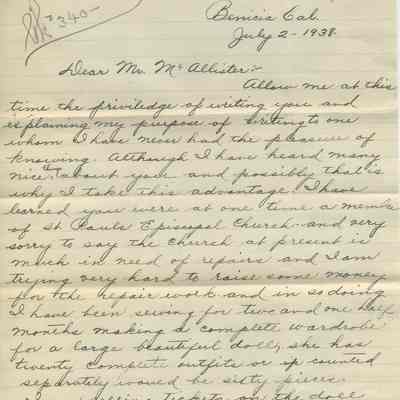 340-
Benicia Cal.
July 2 - 1938.
Dear Mr. McAllister:-
Allow me at this
time the priviledge of writing you and
explaining my purpose of writing to one
whom I have never had the pleasure of
knowing. Although I have heard many
nice about you and possibly that is
why I take this advantage. I have
learned you were at one time a member
of St Pauls Episcopal Church - and very
sorry to say the church at present is
much in need of repairs and I am
trying very hard to raise some money
for the repair work - and in so doing
I have been sewing for two and one half
months making a complete wardrobe
for a large beautiful doll, she has
twenty complete outfits or if counted
separately would be sixty pieces.
selling tickets on the doll